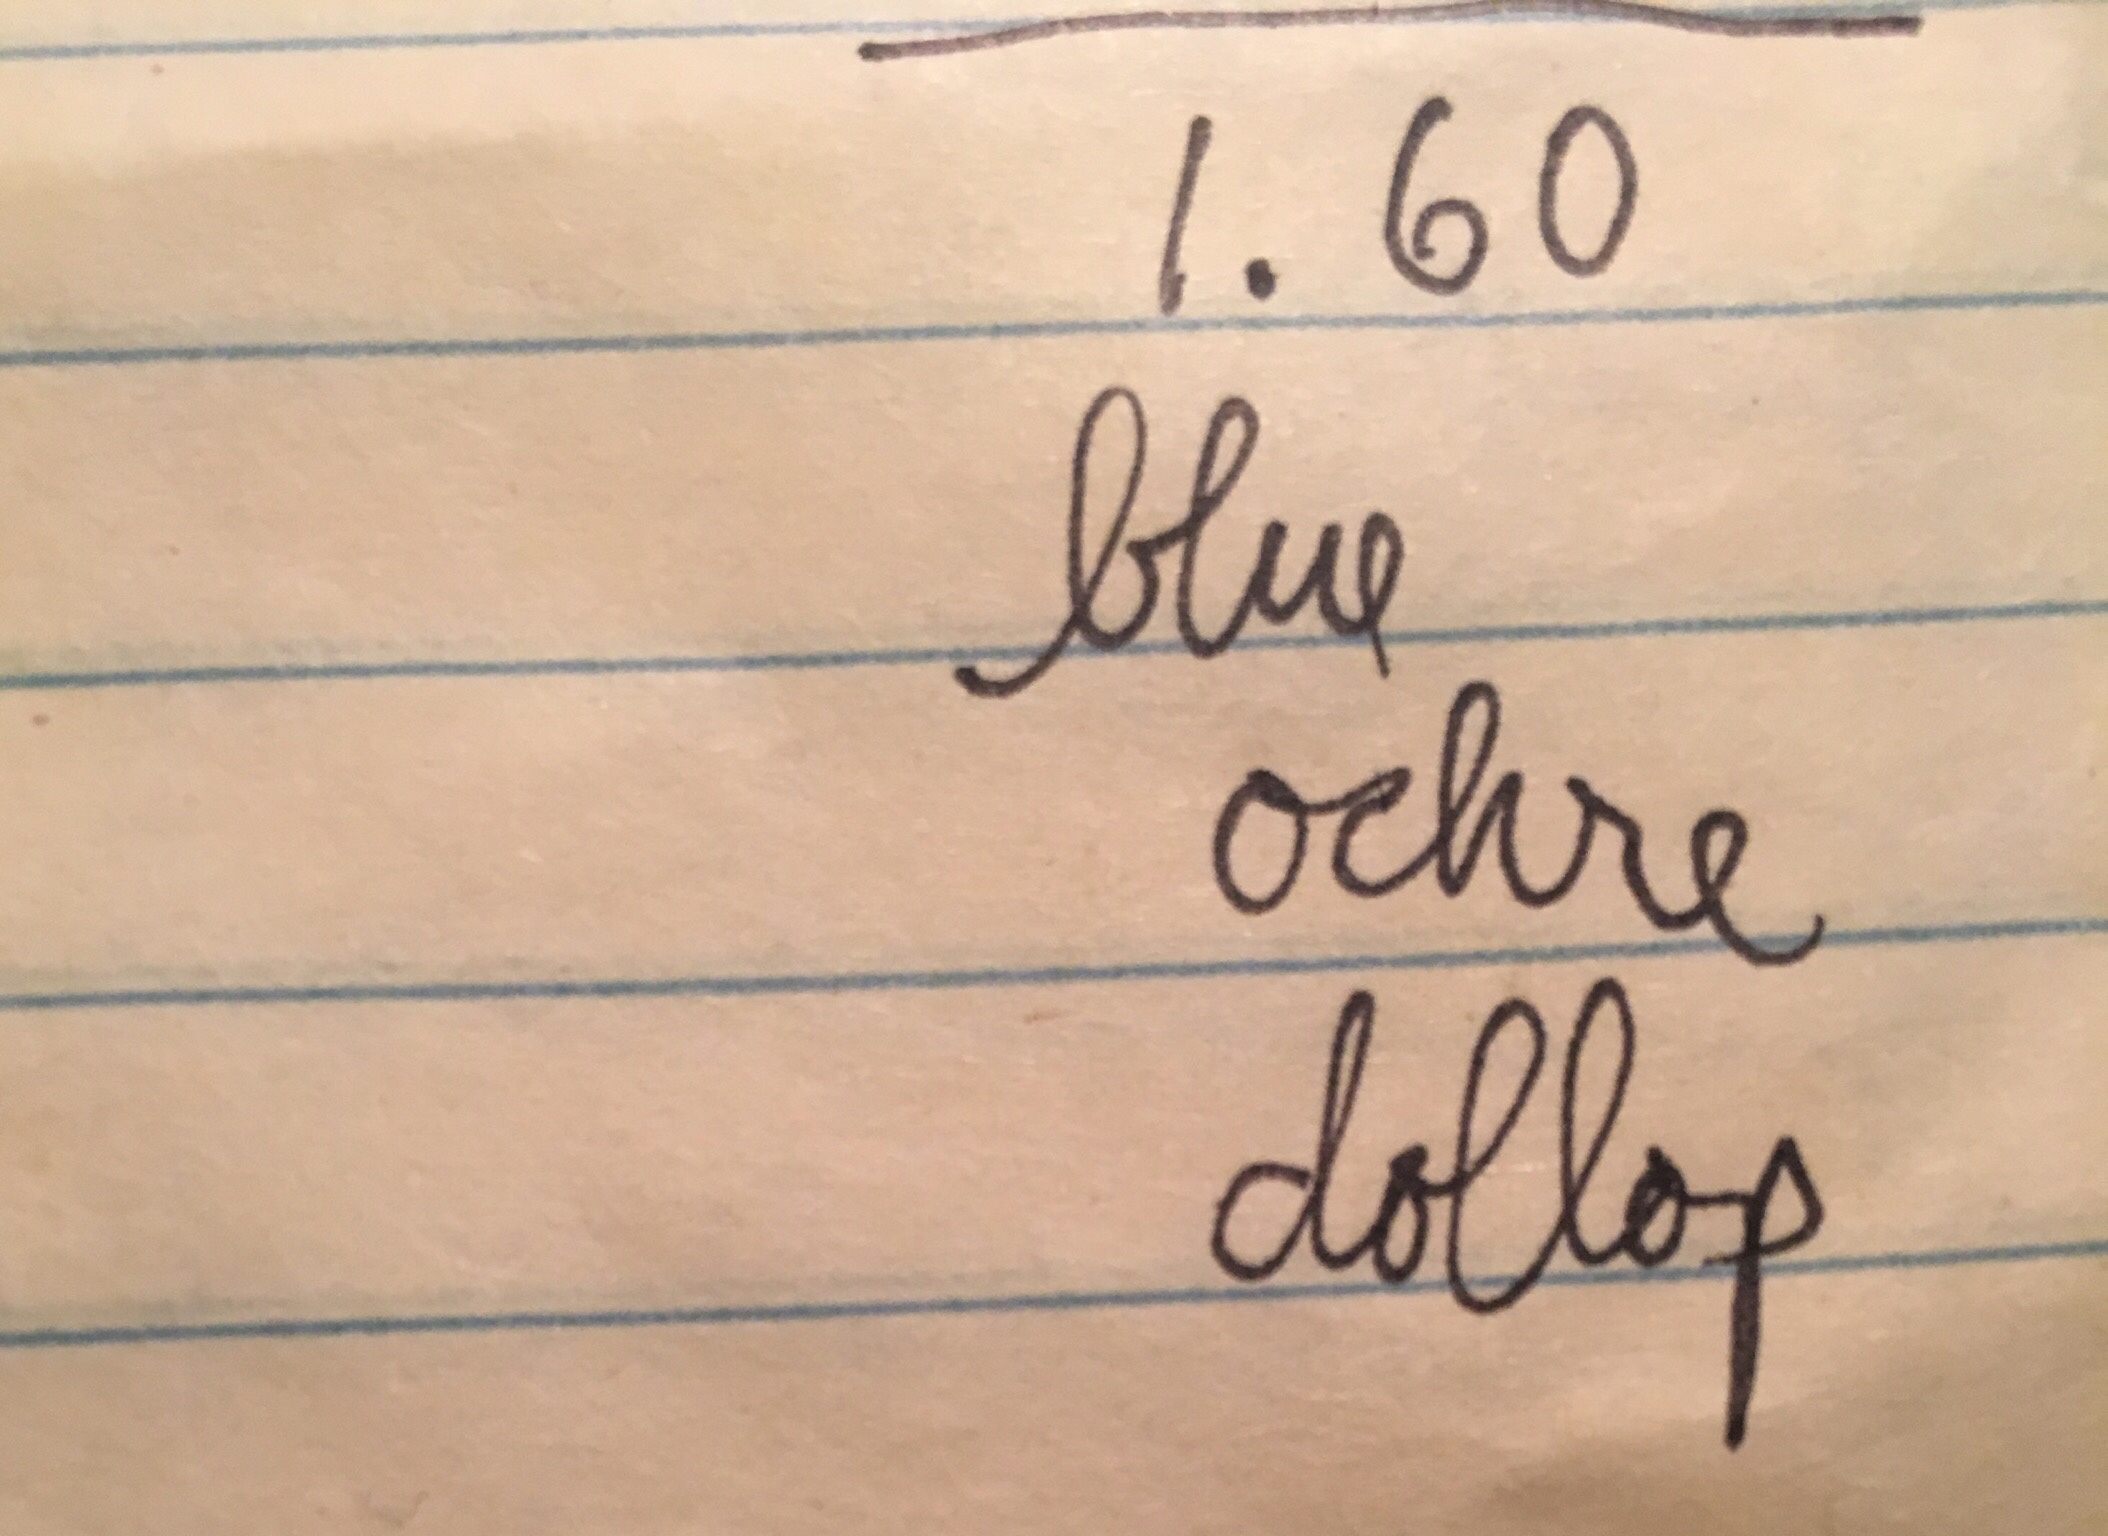 1.60
blue
ochre
dollop